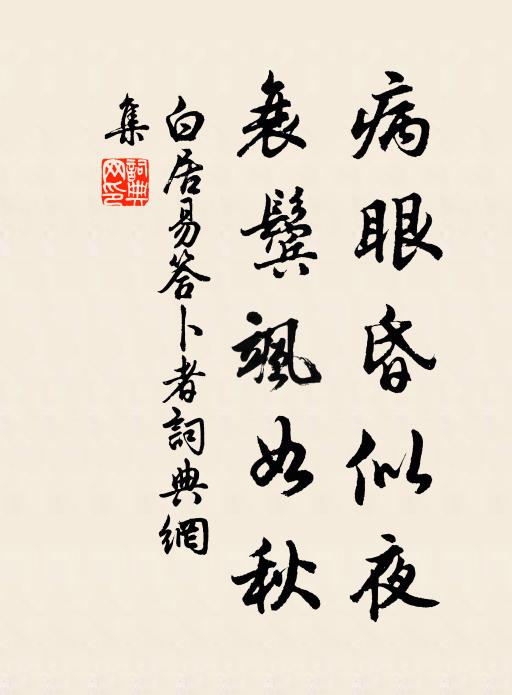 病眼昏似夜
衰鬢颯如秋
白居易答卜者詞典網
集
詞典網印